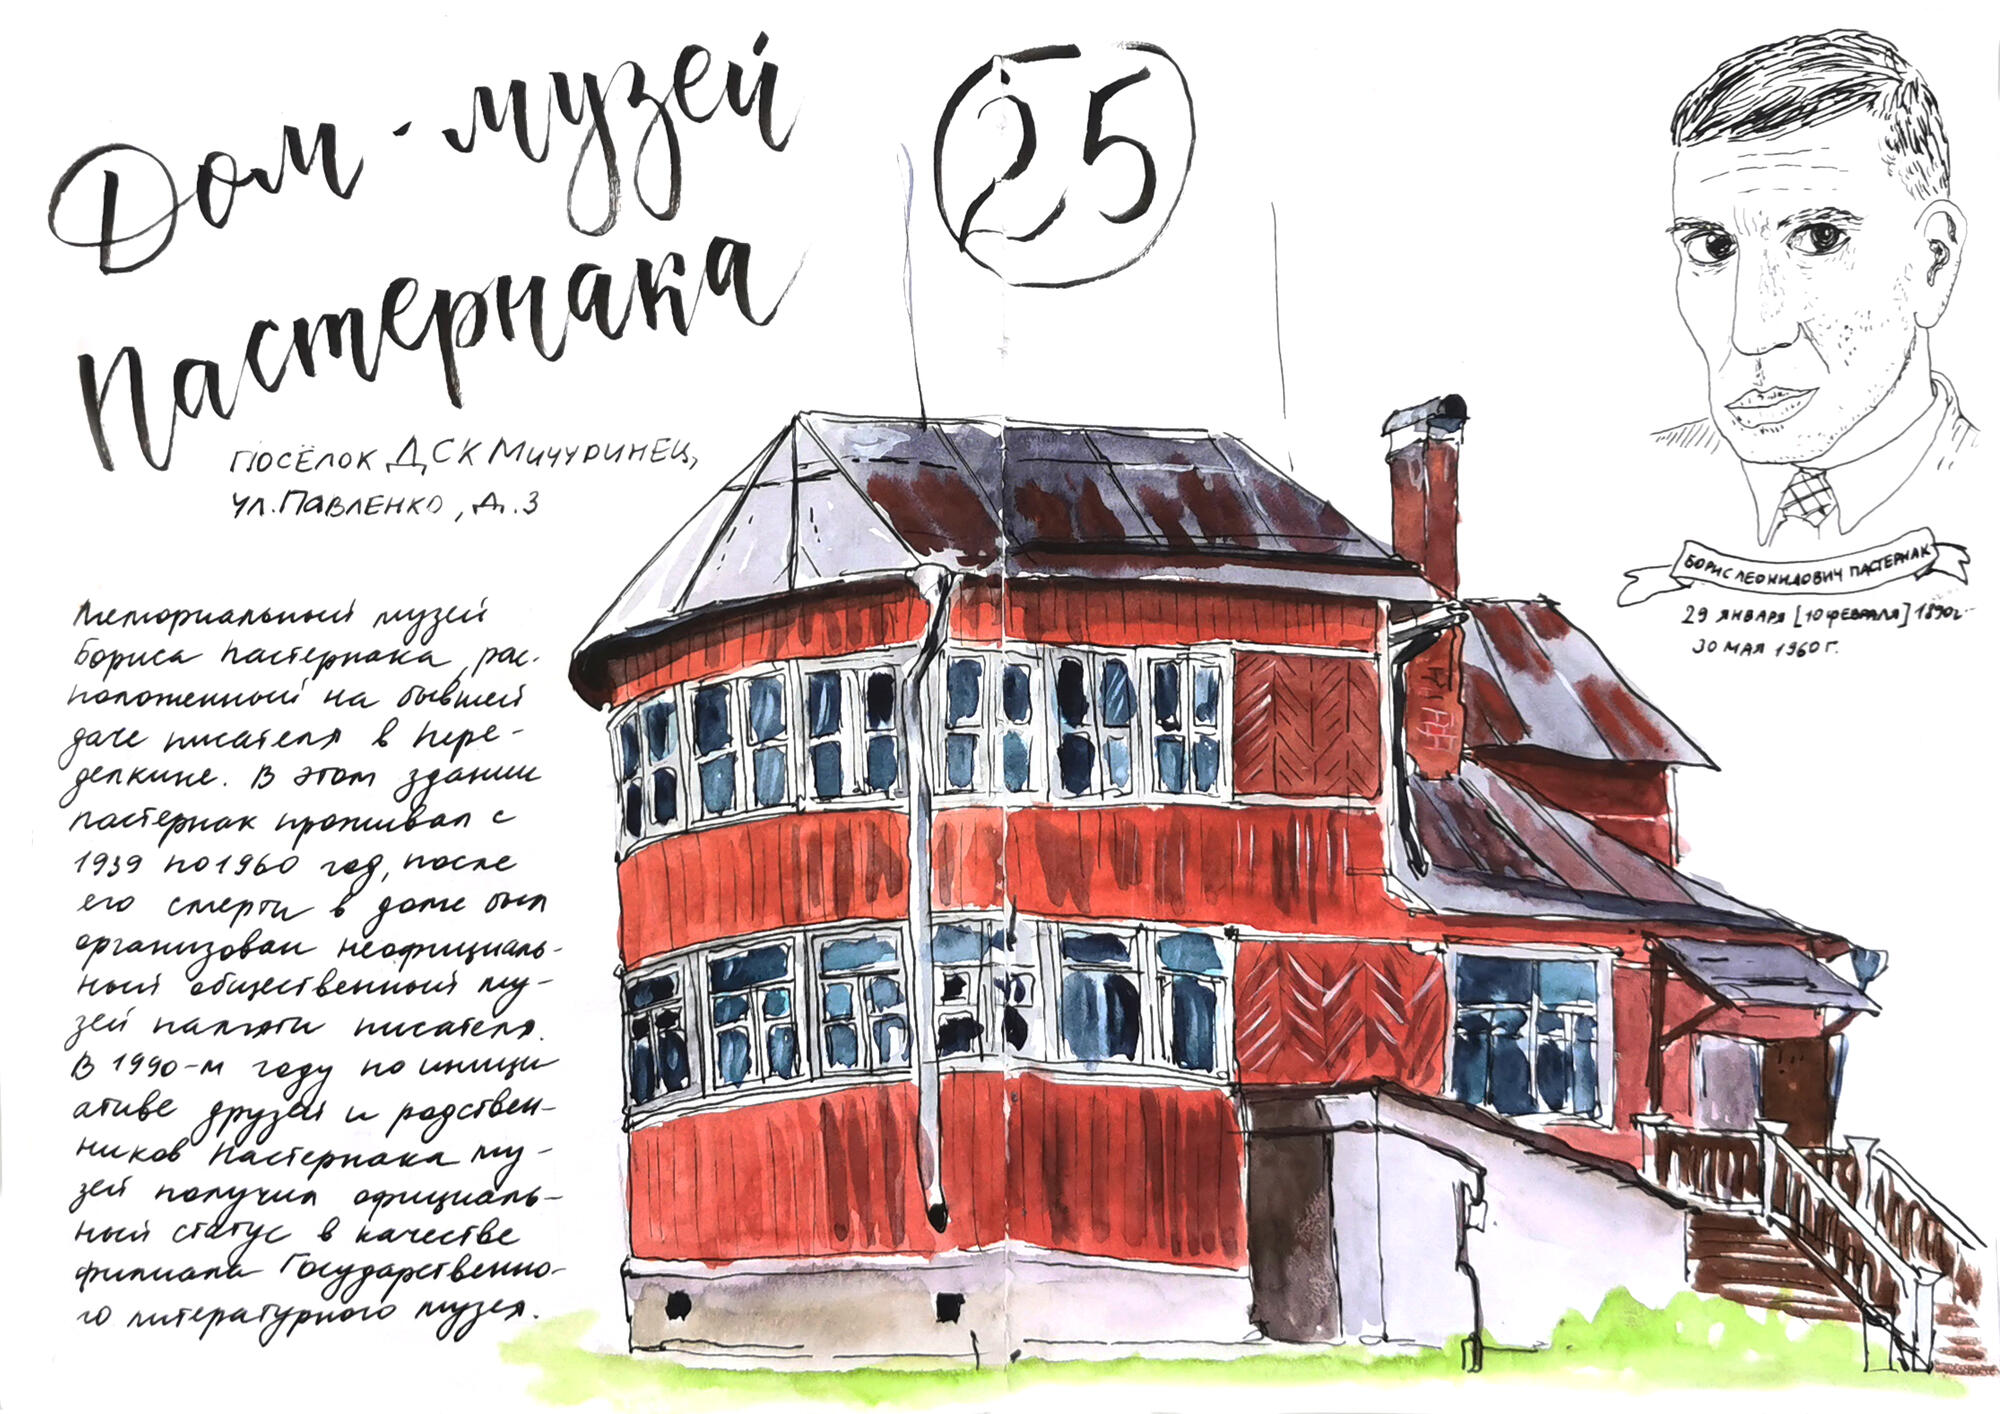 Дом-музей
Пастернака
25
посёлок ДСК Мичуринец,
ул. Павленко, д. 3
Мемориальный музей
Бориса Пастернака, рас-
положенный на бывшей
даче писателя в Пере-
делкине. В этом здании
Пастернак проживал с
1939 по 1960 год, после
его смерти в доме был
организован неофициаль-
ный общественный му-
зей памяти писателя.
В 1990-м году по иници
ативе друзей и родствен-
ников Пастернака му-
зей получил официаль-
ный статус в качестве
филиала Государственно-
го литературного музея.
БОРИС ЛЕОНИДОВИЧ ПАСТЕРНАК
29 ЯНВАРЯ [10 ФЕВРАЛЯ] 1890г.-
30 МАЯ 1960 г.